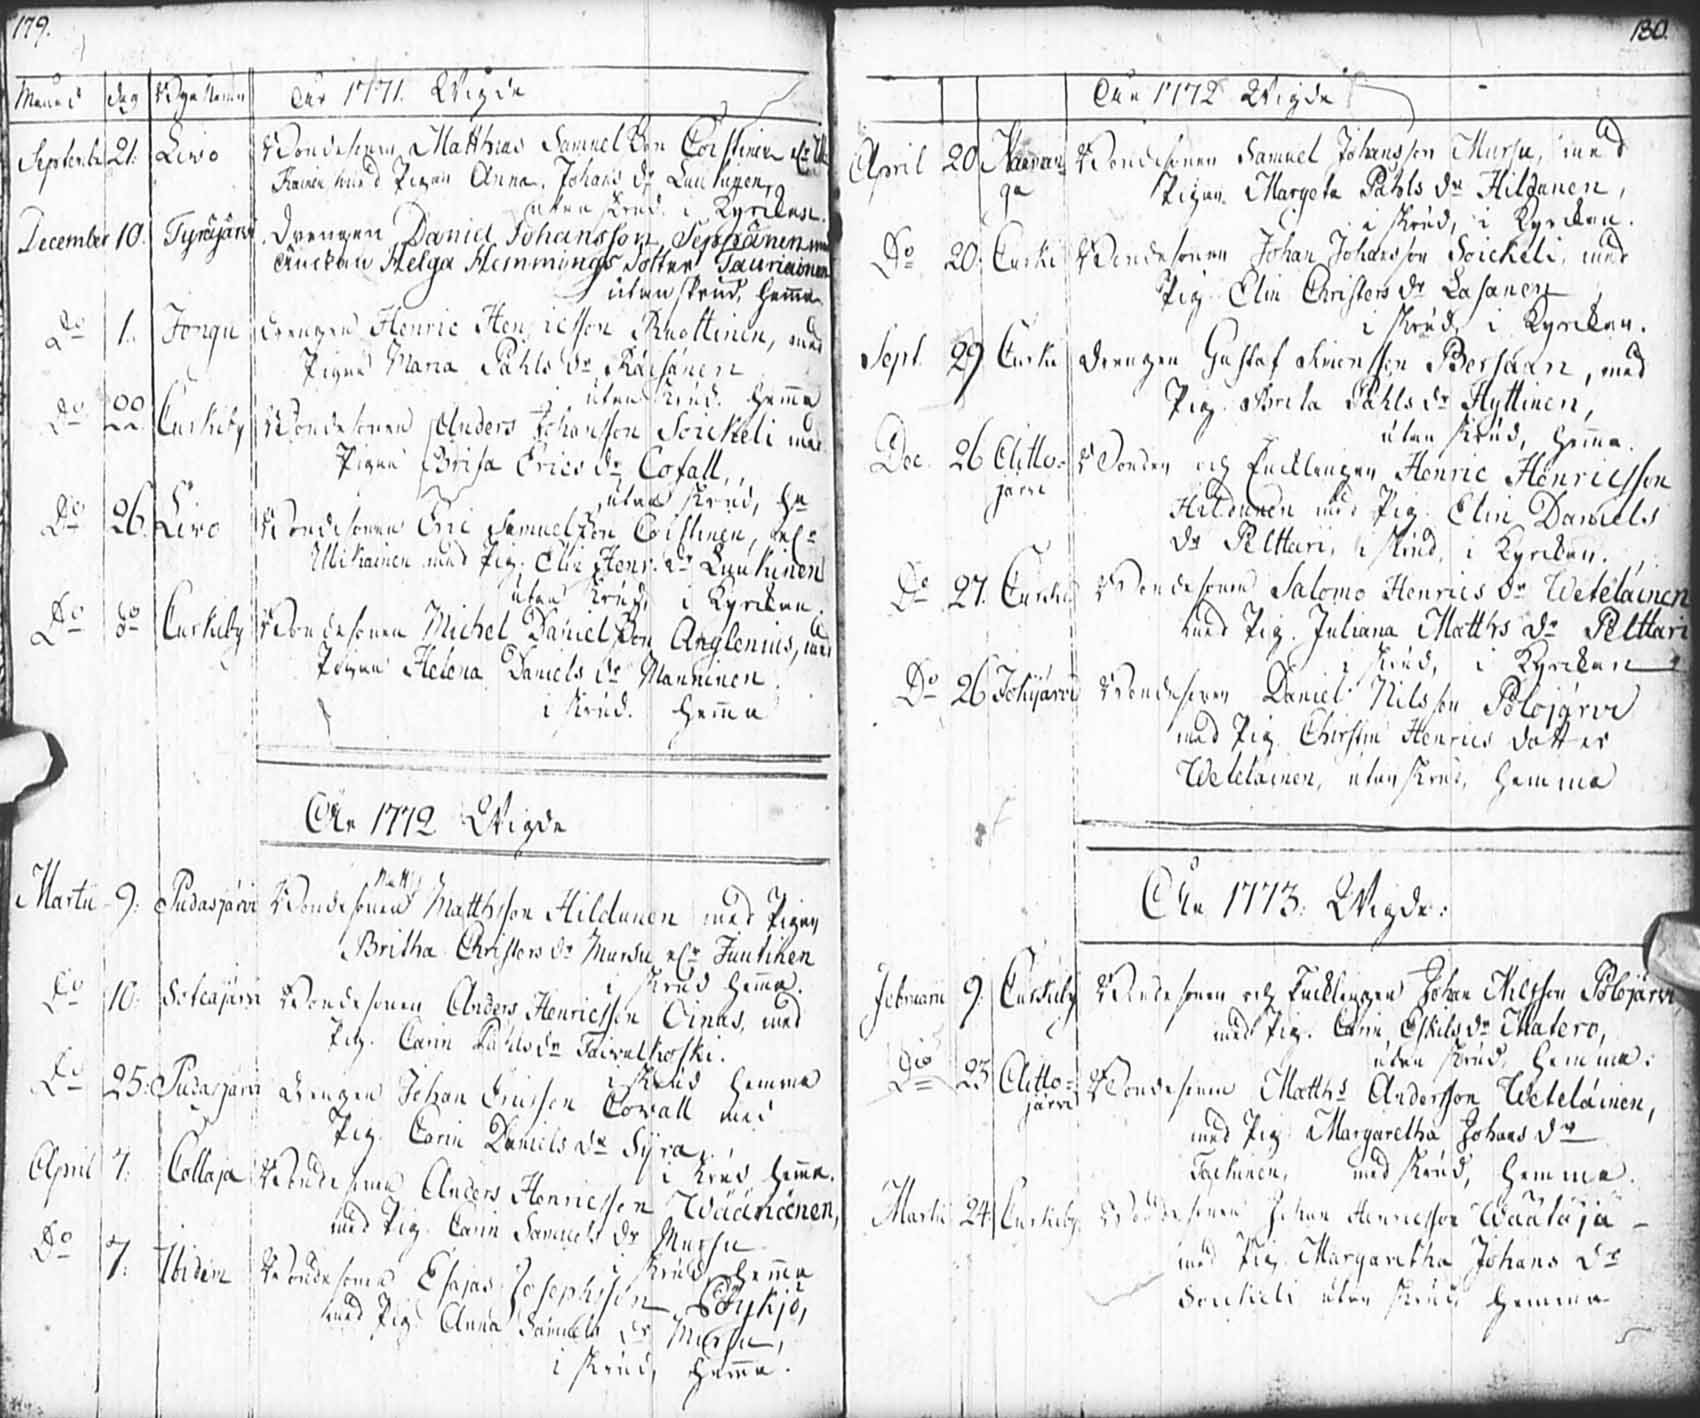 179.
Månad dag Byanamn Åhr 1771. Wigde
Septembr 21. Liwo Bondesonen Matthias Samuelsson Coistinen
med Pigan Anna Johans dr Luukinen,
utan skrud. i Kyrckan.
December 10. Tyräjärvi Drengen Daniel Johansson Seppänen
Änckan Helga Hemmings dotter Tauriainen
utan skrud, hemma
Do 1. Jongu drengen Henric Henricsson Ruottinen, med
Pigan Maria Påhls dr Räisänen
utan skrud. hemma
Do 22. Curkiby Bondesonen Anders Johansson Soickeli med
Pigan Brita Erics dr Cofall,
utan skrud, he
Do 26. Liwo Bondesonen Eric Samuelsson Coistinen,
Uikainen med Pig. Elin Henr. dr Luukinen
utan skrud, i Kyrckan.
Do do Curkiby Bondesonen Michel Danielsson Anglenius, med
Pigan Helena Daniels dr Manninen
i skrud. hemma
Åhr 1772 Wigde
Martii 9. Pudasjärvi Bondesonen Matts Matthsson Hildunen med Pigan
Britha Christers dr Mursu Juutinen
i skrud hemma.
Do 10. Soteajärvi Bondesonen Anders Henricsson Oinas, med
Pig. Carin Påhls dr Taivalkoski.
i skrud hemma
Do 25. Pudasjärvi drengen Johan Ericsson Cowall med
Pig. Carin Daniels dr Syra,
i skrud hemma.
April 7. Collaja Bondesonen Anders Henricsson Wäänänen,
med Pig. Carin Samuels dr Mursu
i skrud hemma
Do 7. Ibidem Bondesonen Esajas Josephsson Pöykiö,
med Pig. Anna Samuels dr Mursu,
i skrud, hemma.
180.
Åhr 1772 Wigde
April 20 Naamanga Bondesonen Samuel Johansson Mursu, med
Pigan Margeta Påhls dr Hildunen,
i skrud, i Kyrckan.
Do 20. Curki Bondesonen Johan Johansson Soickeli, med
Pig. Elin Christers dr Lasanen
i skrud, i Kyrckan.
Sept. 29 Curki drengen Gustaf Simonsson Bersaan, med
Pig. Brita Påhls dr Hyttinen,
utan skrud, hemma.
Dec. 26 Aitto=
järvi Bonden och Encklingen Henric Henricsson
Hildunen med Pig. Elin Daniels
dr Pelttari, i skrud, i Kyrckan.
Do 27. Curki Bondesonen Salomo Henrics dr Wetelainen
med Pig. Juliana Matths dr Pelttari
i skrud, i Kyrckan
Do 26 Jokijärvi Bondesonen Daniel Nilsson Polojärvi
med Pig. Chirstin Henrics dotter
Wetelainen, utan skrud, hemma
Åhr 1773. Wigde:
Februarii 9. Curkiby Bondesonen och Encklingen Johan Nilsson Polojärvi
med Pig. Carin Eskils dr Matero,
utan skrud, hemma.
Do 23 Aitto=
järvi Bondesonen Matths Andersson Wetelainen,
med Pig. Margaretha Johans dr
Tackinen, med skrud, hemma.
Martii 24. Curkiby Bondesonen Johan Henricsson Wäätäjä
med Pig. Margaretha Johans dr
Soickeli utan skrud, hemma